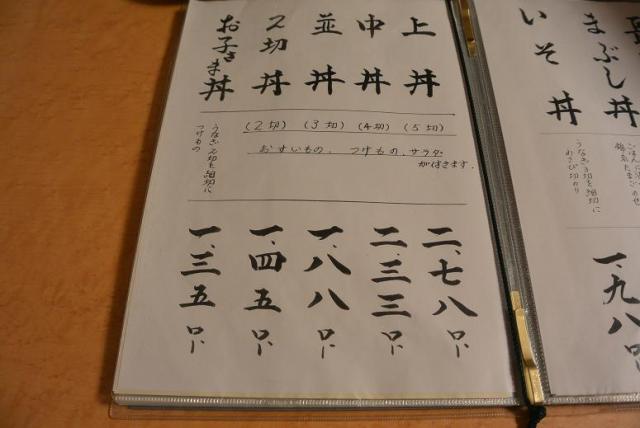 いそ丼
まぶし丼
うなぎ2切を細切に
わさび切のり
一、九八〇
上丼
中丼
並丼
2切丼
お子さま丼
(2切) (3切) (4切) (5切)
おすいもの、つけもの、サラダ
が付きます。
うなぎ2切を細切に
つけもの
二、七八〇
二、三三〇
一、八八〇
一、四五〇
一、三五〇